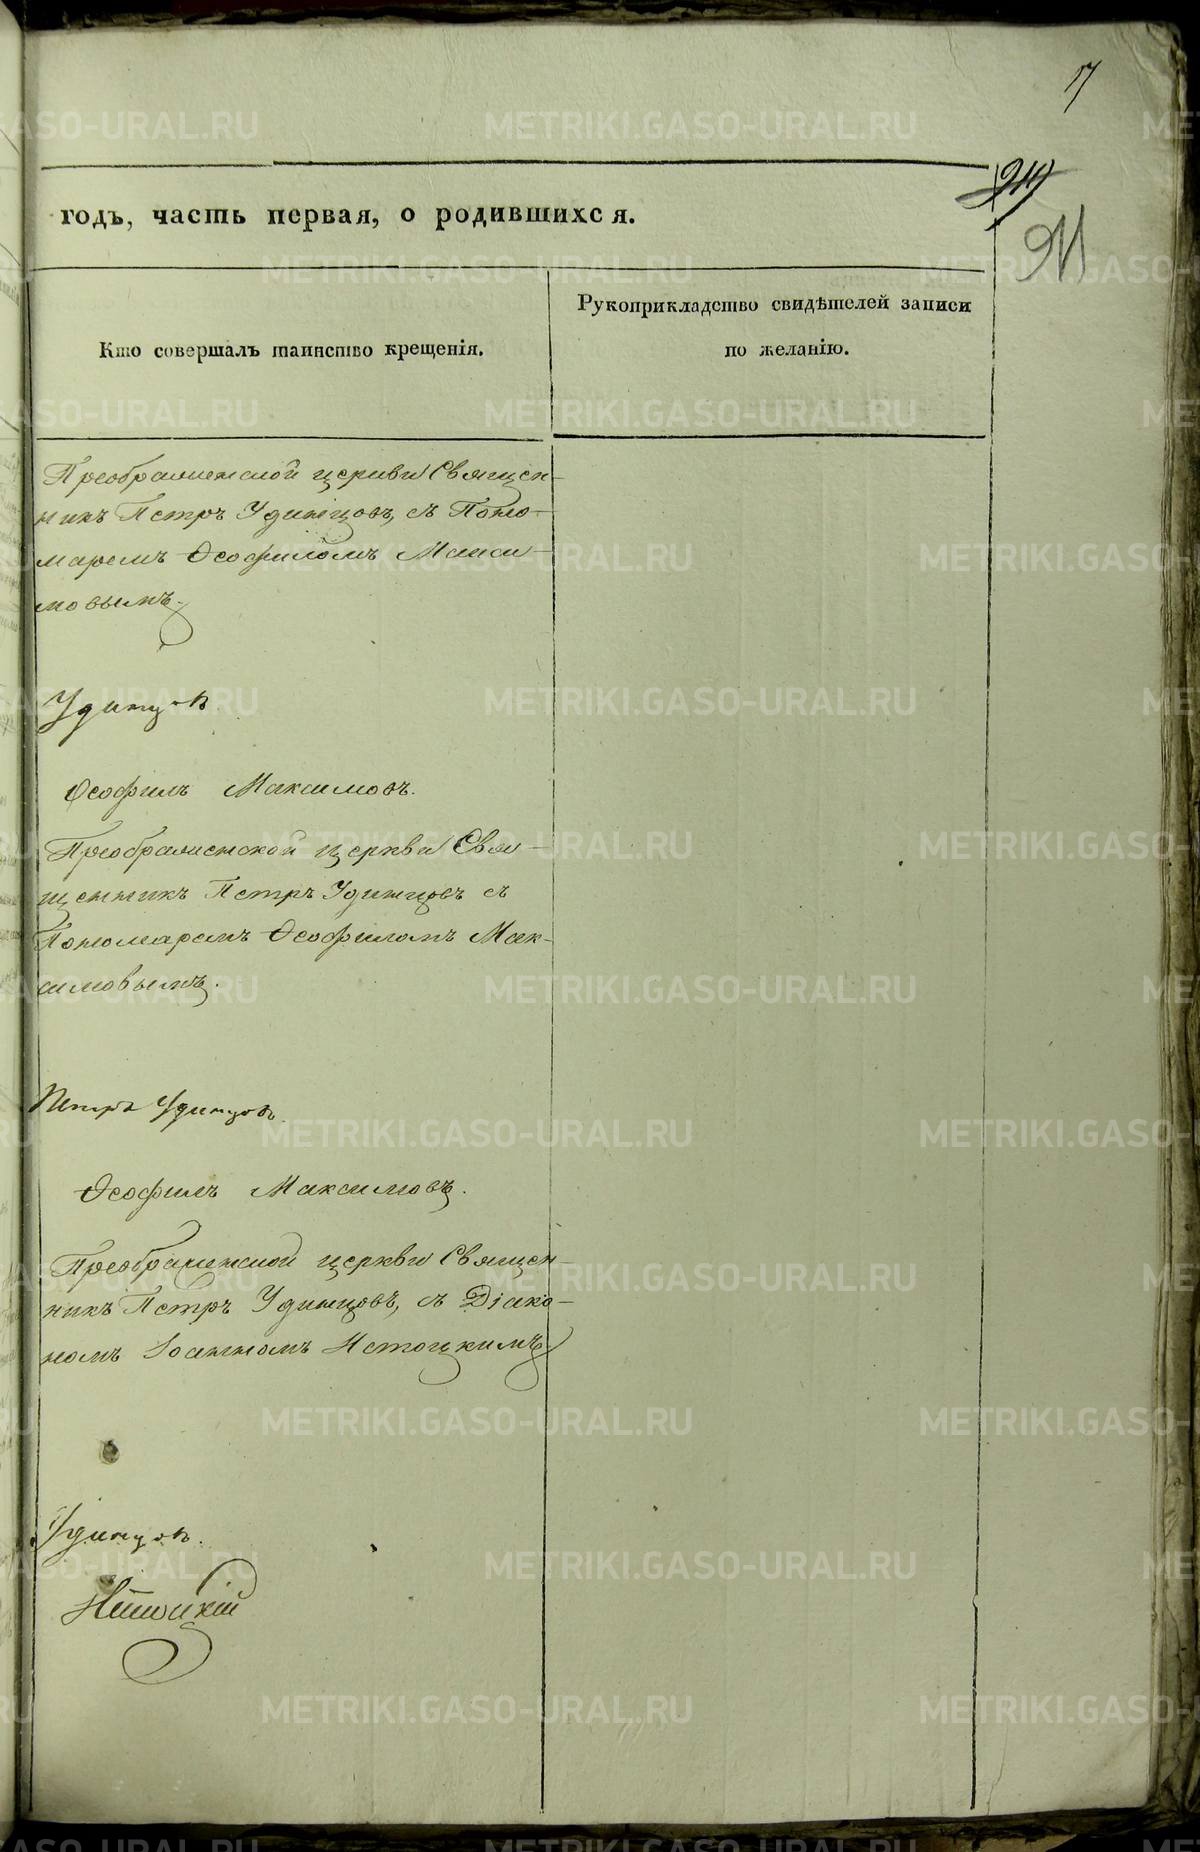 17
911
годъ, часть первая, о родившихся.
Кто совершалъ таинство крещенія.
Рукоприкладство свидѣтелей записи
по желанію.
Преображенской церкви Священ-
никъ Петръ Удинцовъ, съ Поно-
маремъ Ѳеофиломъ Макси-
мовымъ.
Удинцов
Ѳеофилъ Максимовъ.
Преображенской церкви Свя-
щенникъ Петръ Удинцовъ съ
Пономаремъ Ѳеофиломъ Мак-
симовымъ.
Петръ Удинцовъ.
Ѳеофилъ Максимовъ.
Преображенской церкви Священ-
никъ Петръ Удинцовъ, съ Діако-
номъ Іоанномъ Истоцкимъ
Удинцов.
Истоцкій
METRIKI.GASO-URAL.RU